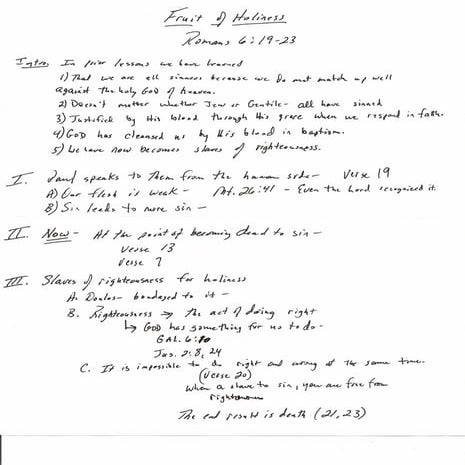 Fruit of Holiness
Romans 6:19-23
Intro. In prior lessons we have learned
1) That we are all sinners because we do not match up well
against the holy God of heaven.
2) Doesn't matter whether Jew or Gentile - all have sinned
3) Justified by His blood through His grace when we respond in faith.
4) God has cleansed us by His blood in baptism.
5) We have now becomes slaves of righteousness.
I. Paul speaks to them from the human side - Verse 19
A) Our flesh is weak - Mt. 26:41 - Even the Lord recognized it.
B) Sin leads to more sin -
II. Now - At the point of becoming dead to sin -
Verse 13
Verse 7
III. Slaves of righteousness for holiness
A. Doulos - bondaged to it -
B. Righteousness → the act of doing right
↳ God has something for us to do -
GAL. 6:10
Jas. 2:8, 24
C. It is impossible to do right and wrong at the same time.
(Verse 20)
When a slave to sin, you are free from
righteousness
The end result is death (21, 23)